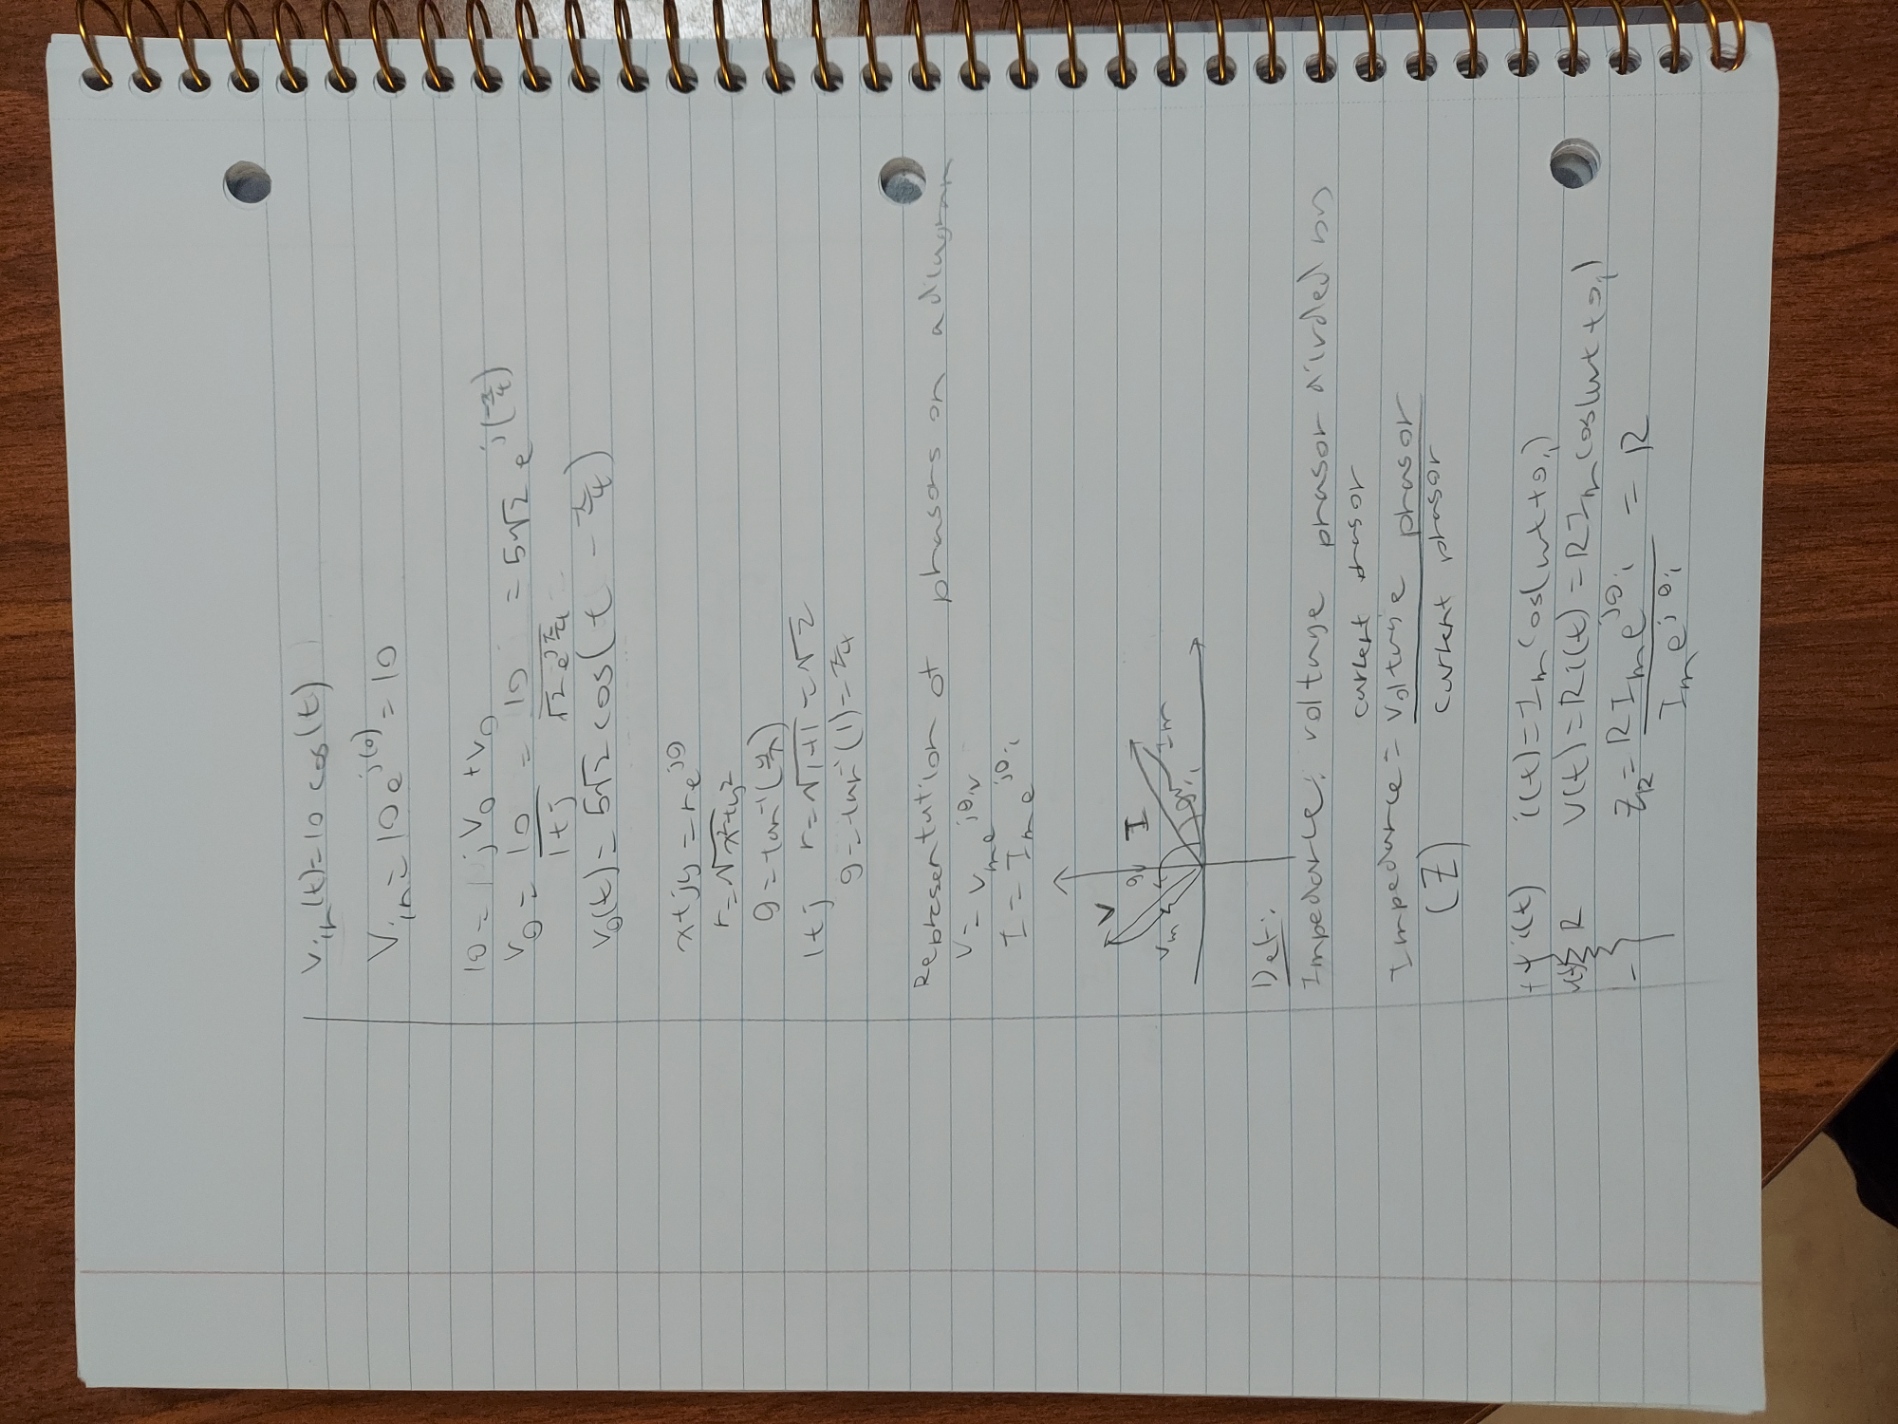 v_in(t)=10 cos(t)
V_in=10e^j(0)=10
10=1jV_0+V_0
V_0=10/(1+j)=10/(√2 e^jπ/4)=5√2 e^j(-π/4)
v_0(t)=5√2 cos(t-π/4)
x+jy=re^jθ
r=√x²+y²
θ=tan⁻¹(y/x)
1+j r=√1+1=√2
θ=tan⁻¹(1)=π/4
Representation of phasors on a diagram
V=V_m e^jθ_v
I=I_m e^jθ_i
V I
V_m θ_v θ_i I_m
Def:
Impedance: voltage phasor divded by
current phasor
Impedance=voltage phasor/current phasor
(Z)
+ i(t) i(t)=I_m cos(wt+θ_i)
v(t) R v(t)=Ri(t)=RI_m cos(wt+θ_i)
- Z_R=RI_m e^jθ_i/I_m e^jθ_i=R